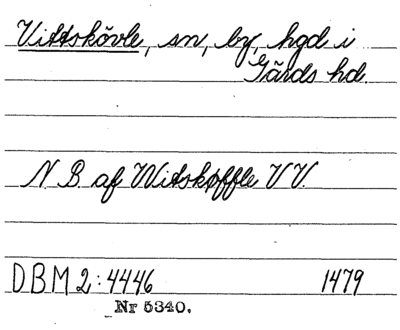 Vittskövle, sn, by, hgd i
Gärds hd.
N. B. af Witskøffle VV.
DBM 2:4446 1479
Nr 5340.